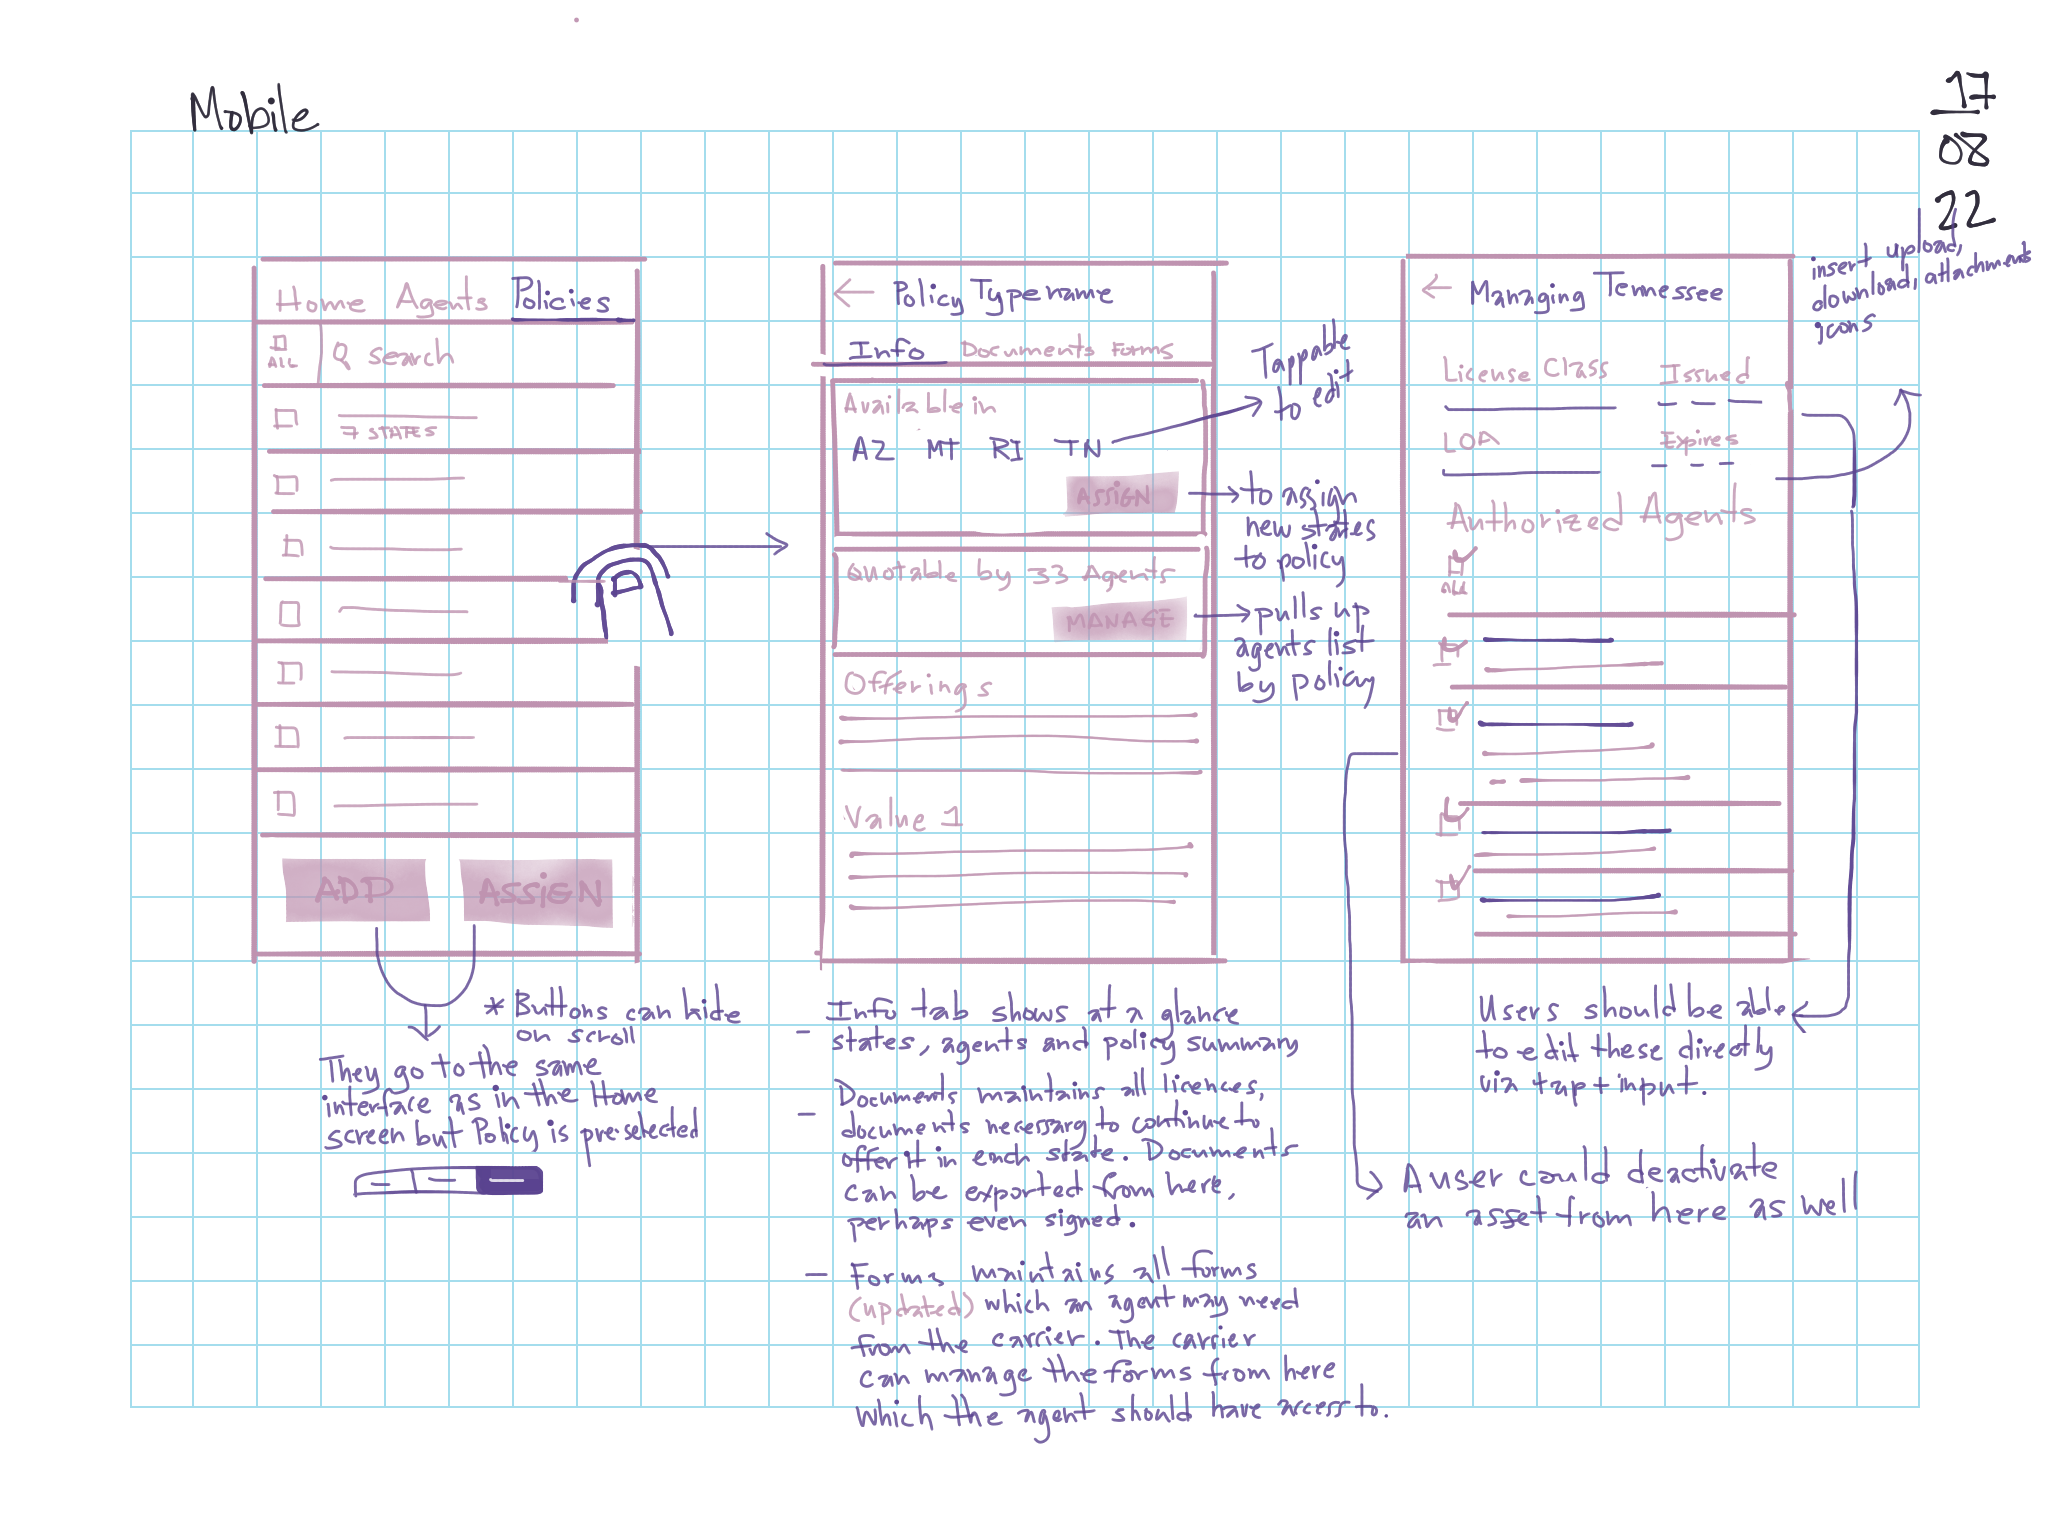 Mobile
17
08
22
Home Agents Policies
ALL
Search
7 STATES
ADD
ASSIGN
* Buttons can hide
on scroll
They go to the same
interface as in the Home
screen but Policy is pre-selected
← Policy Typename
Info Documents Forms
Available in
AZ MT RI TN
ASSIGN
Quotable by 33 Agents
MANAGE
Offerings
Value 1
Tappable
to edit
to assign
new states
to policy
pulls up
agents list
by policy
- Info tab shows at a glance
states, agents and policy summary
- Documents maintains all licences,
documents necessary to continue to
offer it in each state. Documents
can be exported from here,
perhaps even signed.
- Forms maintains all forms
(updated) which an agent may need
from the carrier. The carrier
can manage the forms from here
which the agent should have access to.
← Managing Tennessee
License Class Issued
LOA Expires
Authorized Agents
ALL
insert upload,
download, attachment
icons
Users should be able
to edit these directly
via tap + input.
A user could deactivate
an asset from here as well